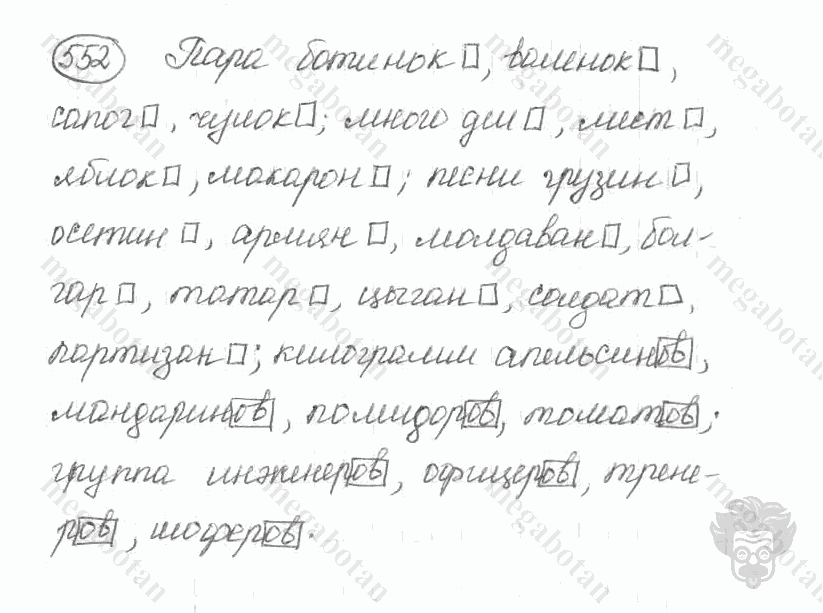 552 Пара ботинок□, валенок□,
сапог□, чулок□; много дел□, мест□,
яблок□, макарон□; песни грузин□,
осетин□, армян□, молдаван□, бол-
гар□, татар□, цыган□, солдат□,
партизан□; килограмм апельсинов,
мандаринов, помидоров, томатов;
группа инженеров, офицеров, трене-
ров, шоферов.
megabotan